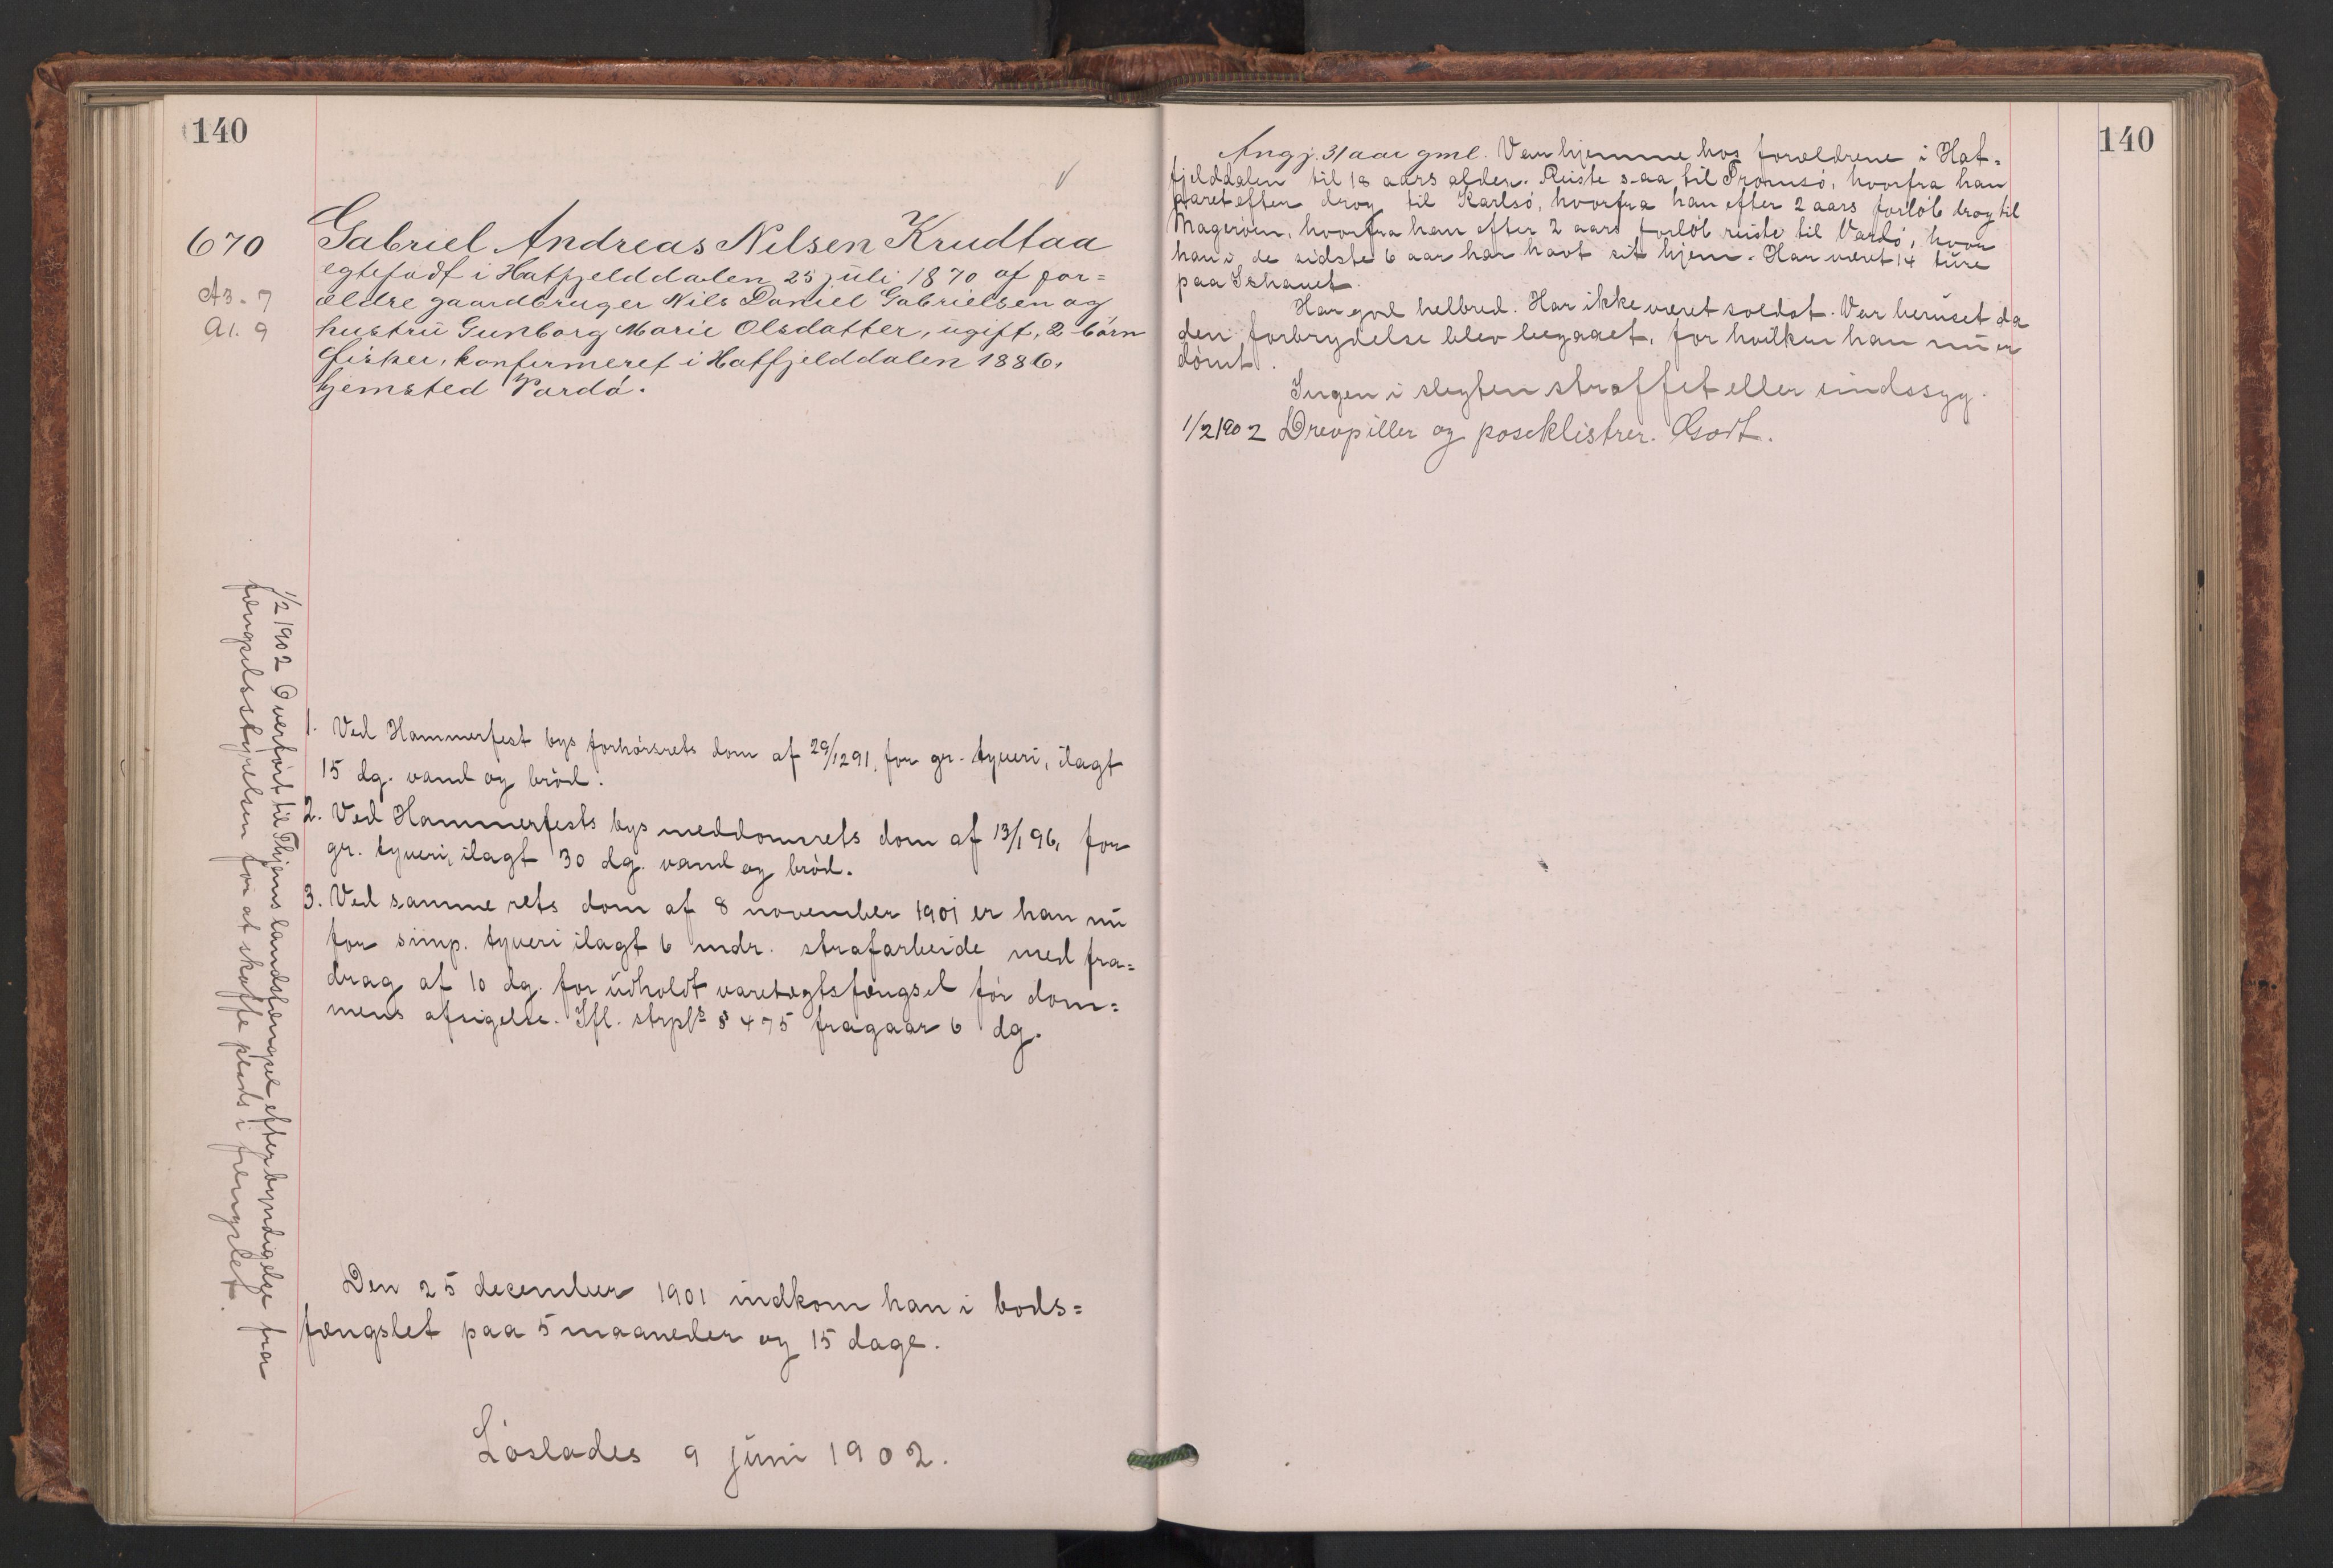 140
670
A3. 7
A1. 9
Gabriel Andreas Nilsen Krudtaa
egtefødt i Hatfjelddalen 25 juli 1870 af for=
ældre gaardbruger Nils Daniel Gabrielsen og
hustru Gunborg Marie Olsdatter, ugift, 2 børn
fisker, konfirmeret i Hatfjelddalen 1886,
hjemsted Vardø.
1. Ved Hammerfest bys forhørsrets dom af 29/12 91, for gr. tyveri, ilagt
15 dg. vand og brød.
2. Ved Hammerfests bys meddomsrets dom af 13/1 96, for
gr. tyveri, ilagt 30 dg. vand og brød.
3. Ved samme rets dom af 8 november 1901 er han nu
for simp. tyveri ilagt 6 mdr. strafarbeide med fra=
drag af 10 dg. for udholdt varetægtsfængsel før dom=
mens afsigelse. Ifl. strpl§ § 475 fragaar 6 dg.
Den 25 december 1901 indkom han i bods=
fængslet paa 5 maaneder og 15 dage.
Løslades 9 juni 1902.
1/2 1902 Overført til Thjems landsfængsel efter byndigelse fra
fængselsstyrelsen for at skaffe plads i fængslet.
140
Angj. 31 aar gml. Var hjemme hos forældrene i Hat=
fjelddalen til 18 aars alder. Reiste saa til Tromsø, hvorfra han
aaret efter drog til Karlsø, hvorfra han efter 2 aars forløb drog til
Magerøen, hvorfra han efter 2 aars forløb reiste til Vardø, hvor
han i de sidste 6 aar har havt sit hjem. Har været 14 ture
paa Ishavet.
Har god helbred. Har ikke været soldat. Var beruset da
den forbrydelse blev begaaet, for hvilken han nu er
dømt.
Ingen i slegten straffet eller sindssyg.
1/2 1902 Drevpiller og poseklistrer. Godt.